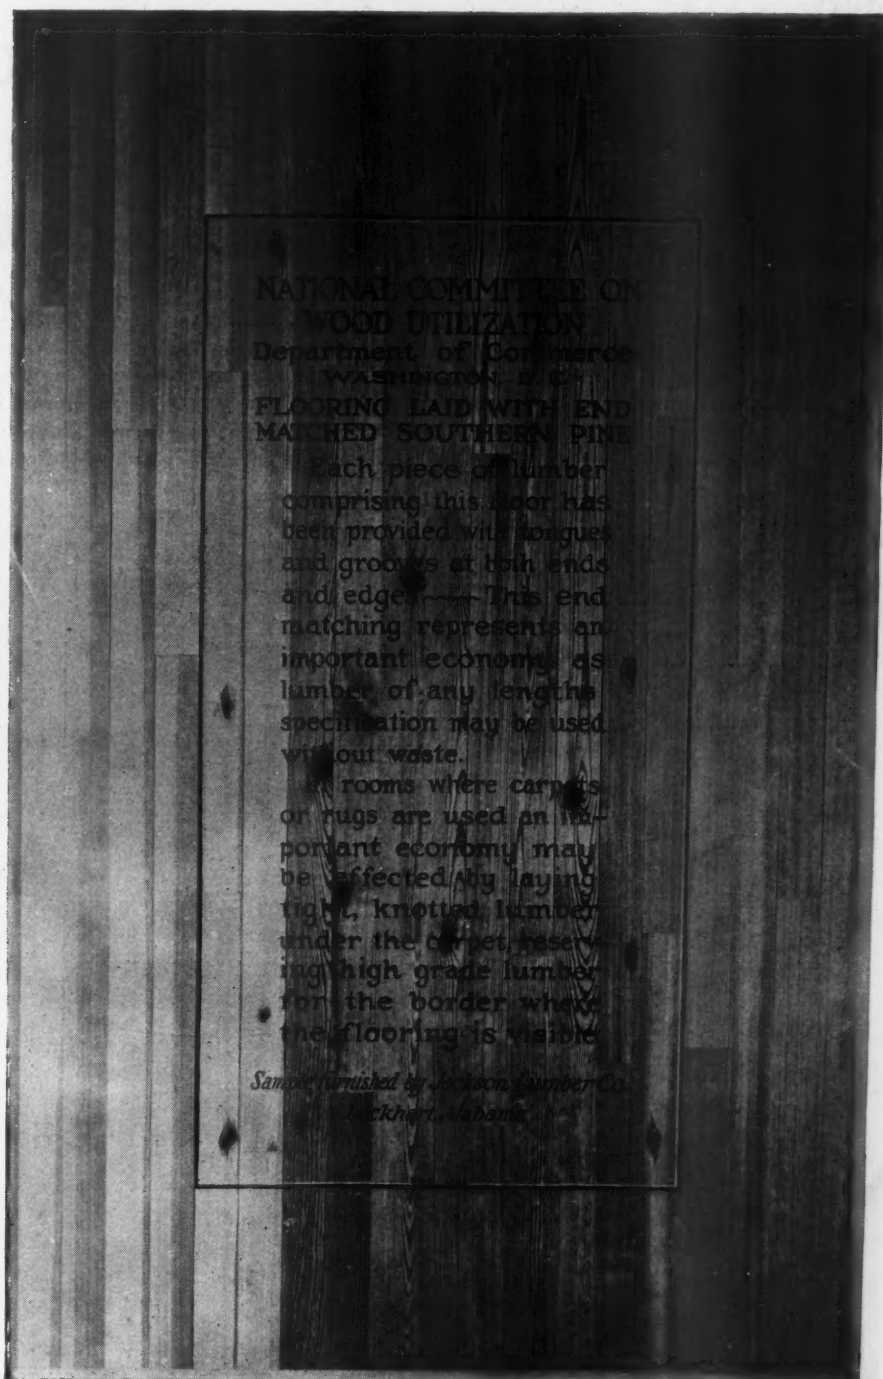 NATIONAL COMMITTEE ON
WOOD UTILIZATION
Department of Commerce
WASHINGTON, D. C.
FLOORING LAID WITH END
MATCHED SOUTHERN PINE
Each piece of lumber
comprising this floor has
been provided with tongues
and grooves at both ends
and edges — This end
matching represents an
important economy as
lumber of any lengths
specification may be used
without waste.
In rooms where carpets
or rugs are used an im-
portant economy may
be effected by laying
tight, knotted lumber
under the carpet, reserv-
ing high grade lumber
for the border where
the flooring is visible
Sample furnished by Jackson Lumber Co.
Lockhart, Alabama